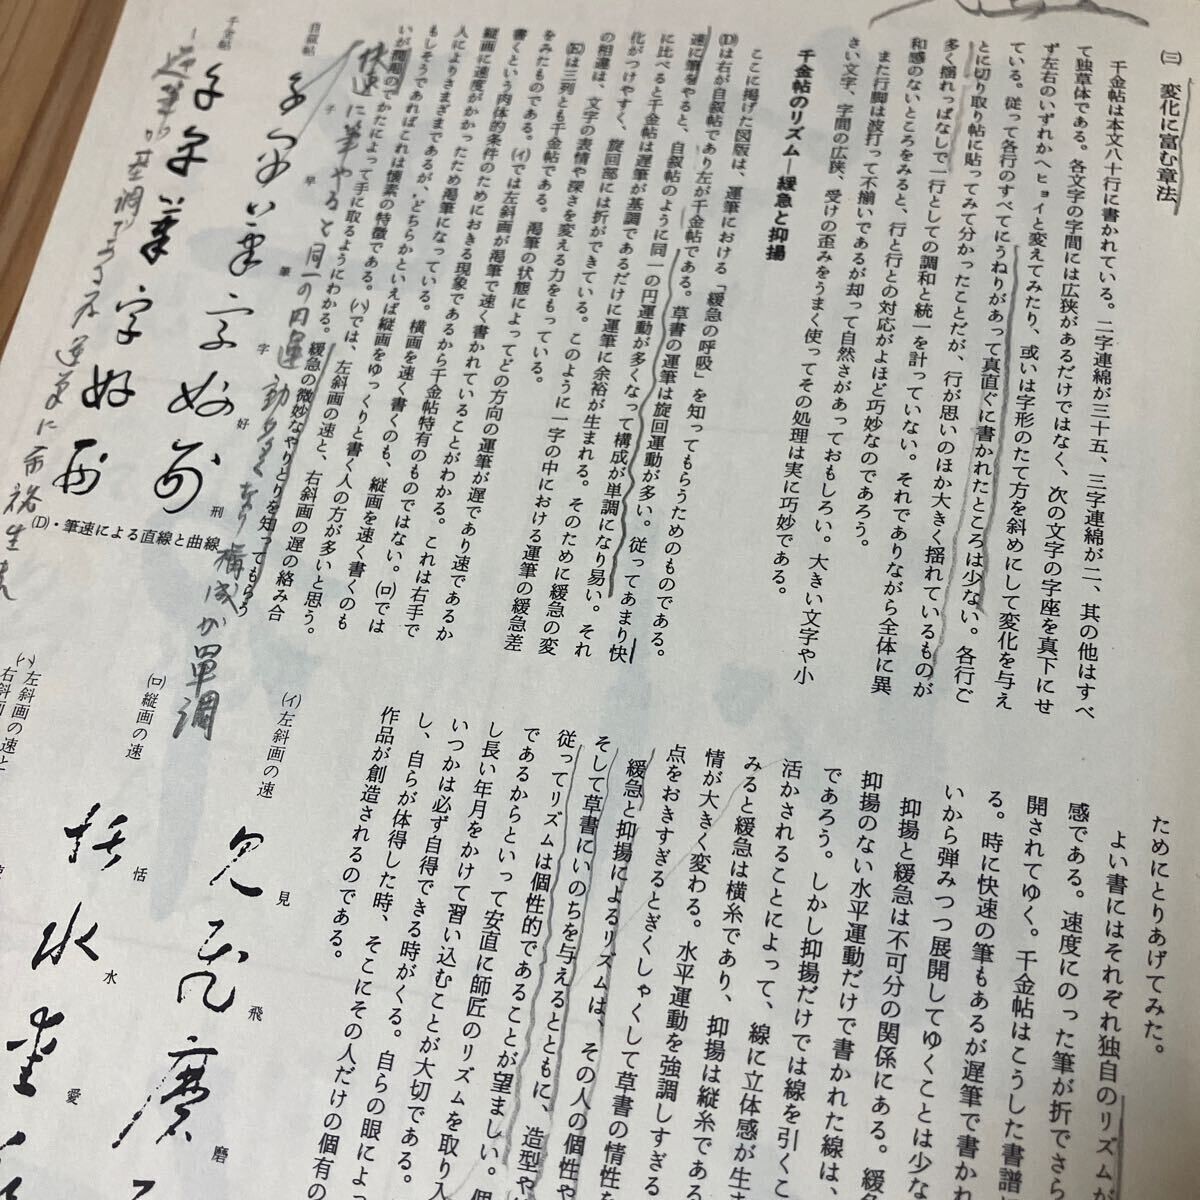 (三) 変化に富む章法
千金帖は本文八十行に書かれている。二字連綿が三十五、三字連綿が二、其の他はすべ
て独草体である。各文字の字間には広狭があるだけではなく、次の文字の字座を真下にせ
ず左右のいずれかへヒョイと変えてみたり、或いは字形のたて方を斜めにして変化を与え
ている。従って各行のすべてにうねりがあって真直ぐに書かれたところは少ない。各行ご
とに切り取り帖に貼ってみて分かったことだが、行が思いのほか大きく揺れているものが
多く揺れっぱなしで一行としての調和と統一を計っていない。それでありながら全体に異
和感のないところをみると、行と行との対応がよほど巧妙なのであろう。
また行脚は波打って不揃いであるが却って自然さがあっておもしろい。大きい文字や小
さい文字、字間の広狭、受けの歪みをうまく使ってその処理は実に巧妙である。
千金帖のリズム―緩急と抑揚
ここに掲げた図版は、運筆における「緩急の呼吸」を知ってもらうためのものである。
(D)は右が自叙帖であり左が千金帖である。草書の運筆は旋回運動が多い。従ってあまり快
速に筆をやると、自叙帖のように同一の円運動が多くなって構成が単調になり易い。それ
に比べると千金帖は遅筆が基調であるだけに運筆に余裕が生まれる。そのために緩急の変
化がつけやすく、旋回部には折ができている。このように一字の中における運筆の緩急差
の相違は、文字の表情や深さを変える力をもっている。
(E)は三列とも千金帖である。渇筆の状態によってどの方向の運筆が遅であり速であるか
をみたものである。(イ)では左斜画が渇筆で速く書かれていることがわかる。これは右手で
書くという肉体的条件のためにおきる現象であるから千金帖特有のものではない。(ロ)では
縦画に速度がかかったため渇筆になっている。横画を速く書くのも、縦画を速く書くのも
人によりさまざまであるが、どちらかといえば縦画をゆっくりと書く人の方が多いと思う。
もしそうであればこれは懐素の特徴である。(ハ)では、左斜画の速と、右斜画の遅の絡み合
いが間剋のでかたによって手に取るようにわかる。緩急の微妙なやりとりを知ってもらう
快速に筆やると同一の円運動多くなり構成が単調
自叙帖
子
早
筆
字
好
刑
千金帖
(D)・筆速による直線と曲線
ためにとりあげてみた。
よい書にはそれぞれ独自のリズム
感である。速度にのった筆が折でさら
開されてゆく。千金帖はこうした書譜
る。時に快速の筆もあるが遅筆で書かれ
いから弾みつつ展開してゆくことは少な
抑揚と緩急は不可分の関係にある。緩
抑揚のない水平運動だけで書かれた線は、
であろう。しかし抑揚だけでは線を引くこ
活かされることによって、線に立体感が生
みると緩急は横糸であり、抑揚は縦糸である
情が大きく変わる。水平運動を強調しすぎる
点をおきすぎるとぎくしゃくして草書の情性を
緩急と抑揚によるリズムは、その人の個性や
そして草書にいのちを与えるとともに、造型や
従ってリズムは個性的であることが望ましい。個
であるからといって安直に師匠のリズムを取り入
し長い年月をかけて習い込むことが大切である。
いつかは必ず自得できる時がくる。自らの眼によっ
し、自らが体得した時、そこにその人だけの個有の
作品が創造されるのである。
(イ)左斜画の速
見
飛
磨
(ロ)縦画の速
恬
水
愛
(ハ)左斜画の速と